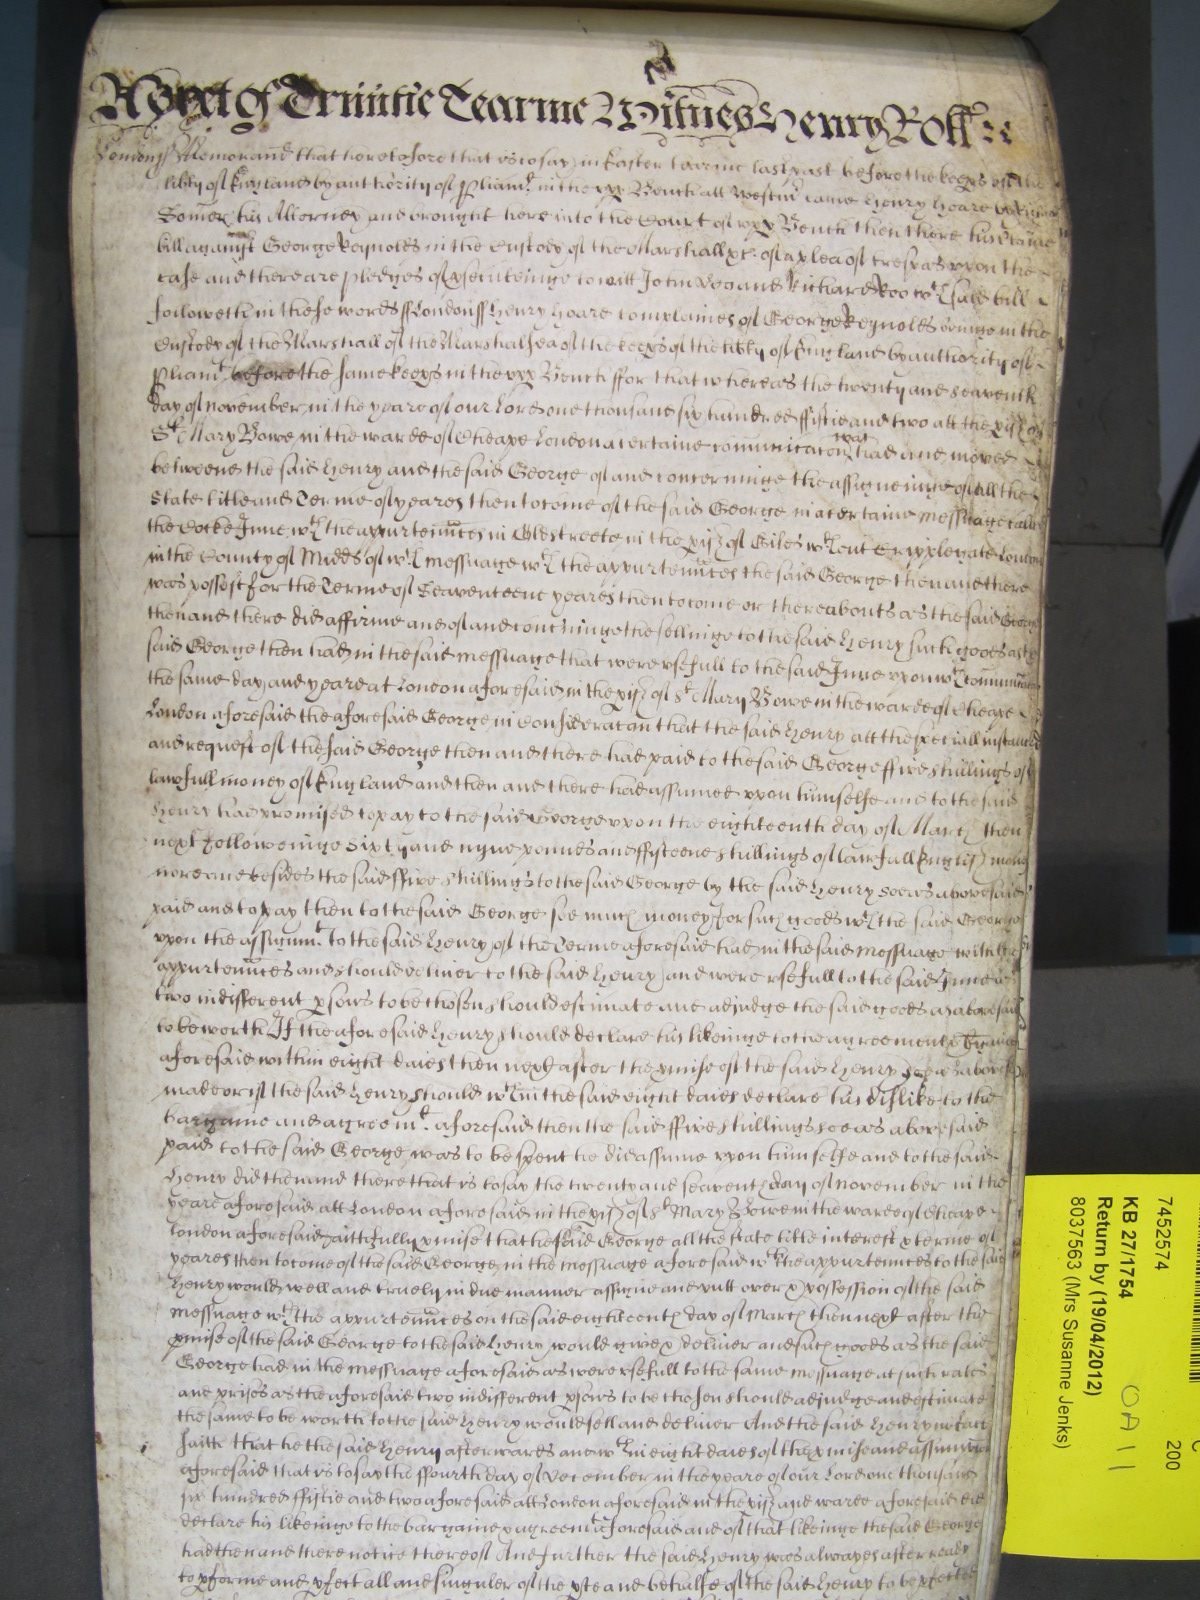 Yet of Trinitie Tearme Witness Henry Rolle
London ss Memorand that heretofore that is to say in Easter tearme last past before the keeps of the
libty of England by authority of Pliamt in the upp Bench att Westmr came Henry Hoare by
Somer his Attorney and brought here into the Court of upp Bench then there his certaine
bill against George Reynoldes in the Custody of the Marshall &c of a plea of trespas upon the
case and there are pledges of psecuteinge to witt John Doo and Richard Roo wch said bill
followeth in these words ss London ss Henry Hoare complaines of George Reynoldes beinge in the
Custody of the Marshall of the Marshalsea of the keeps of the libty of England by authority of
Pliamt before the same keeps in the upp Bench ffor that whereas the twenty and seaventh
day of November in the yeare of our Lord one thousand six hundred ffiftie and two att the pish of
St Mary Bowe in the warde of Cheape London a certaine communicacon was had and moved
betweene the said Henry and the said George of and concerninge the assigneinge of all the
state title and Terme of yeares then to come of the said George in a certaine messuage called
the Cocke Inne wth the appurtennces in Oldstreete in the pish of Giles wthout Cripplegate London
in the County of Midds of wch messuage wth the appurtennces the said George then and there
was possest for the Terme of Seaventeene yeares then to come or thereabouts as the said George
then and there did affirme and of and concninge the sellinge to the said Henry such goods as the
said George then had in the said messuage that were usefull to the said Inne upon wch communicacon
the same day and yeare at London aforesaid in the pish of St Mary Bowe in the warde of Cheape
London aforesaid the aforesaid George in Consideracon that the said Henry att the speciall instance
and request of the said George then and there had paid to the said George ffive shillings of
lawfull money of England and then and there had assumed upon himselfe and to the said
Henry had promised to pay to the said George upon the eighteenth day of March then
next followeinge Sixty and nyne pounds and ffifteene shillings of lawfull English money
more and besides the said ffive shillings to the said George by the said Henry soe as abovesaid
paid and to pay then to the said George soe much money for such goods wch the said George
upon the assignmt to the said Henry of the Terme aforesaid had in the said messuage with the
appurtennces and should deliver to the said Henry and were usefull to the said Inne as
two indifferent psons to be chosen should estimate and adjudge the said goods as abovesaid
to be worth If the aforesaid Henry should declare his likeinge to the agreement & bargaine
aforesaid within eight daies then next after the pmise of the said Henry soe as abovesaid
made or if the said Henry should wthin the said eight daies declare his dislike to the
bargaine and agreemt aforesaid then the said ffive shillings soe as abovesaid
paid to the said George was to be spent he did assume upon himselfe and to the said
Henry did then and there that is to say the twenty and seaventh day of November in the
yeare aforesaid att London aforesaid in the pish of St Mary Bowe in the warde of Cheape
London aforesaid faithfully pmise that he the said George all the state title interest & terme of
yeares then to come of the said George in the messuage aforesaid wth the appurtennces to the said
Henry would well and truely in due manner assigne and putt over & possession of the said
messuage wth the appurtennces on the said eighteenth day of March then next after the
pmise of the said George to the said Henry would give & deliver and such goods as the said
George had in the messuage aforesaid as were usefull to the same messuage at such rates
and prises as the aforesaid two indifferent psons to be chosen should adjudge and estimate
the same to be worth to the said Henry would sell and deliver And the said Henry in fact
saith that he the said Henry afterwards and wthin eight daies of the pmise and assumpcon
aforesaid that is to say the ffourth day of December in the yeare of our Lord one thousand
six hundred ffiftie and two aforesaid att London aforesaid in the pish and warde aforesaid did
declare his likeinge to the bargaine & agreemt aforesaid and of that likeinge the said George
had then and there notice thereof And further the said Henry was alwayes after ready
to pforme and pfect all and singuler of the pte and behalfe of the said Henry to be pfected
7452574
KB 27/1754
Return by (19/04/2012)
8037563 (Mrs Susanne Jenks)
200
OA 11